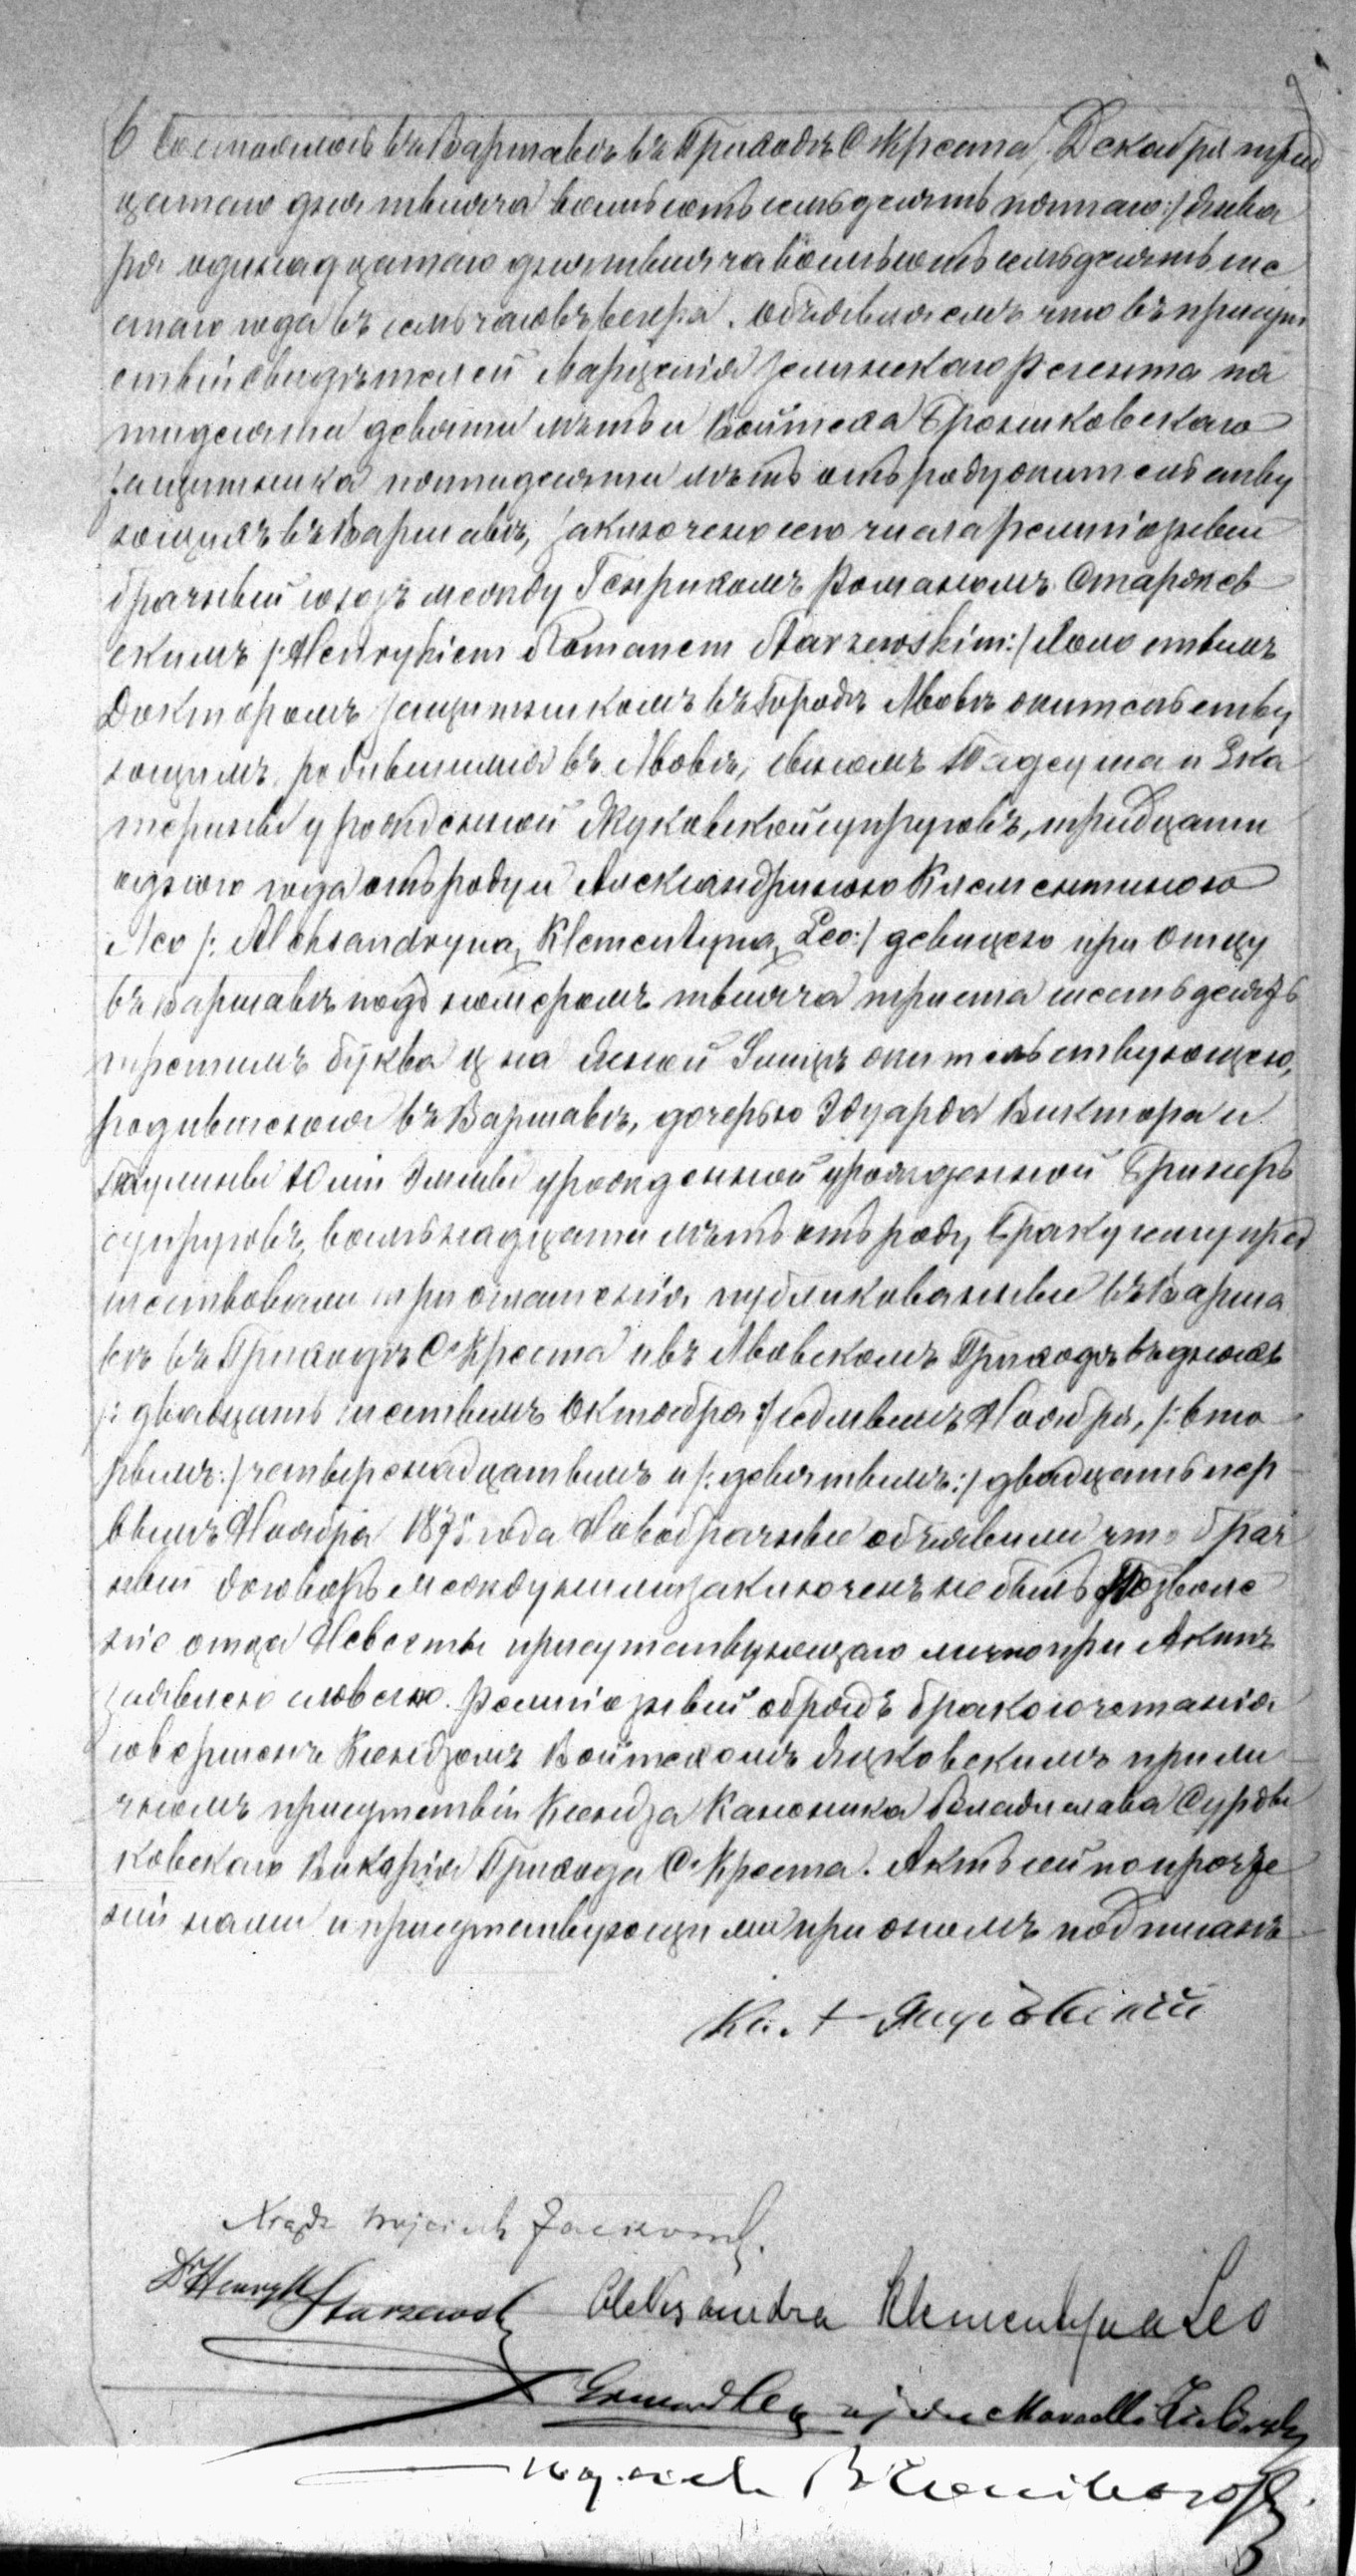 6 Состоялось въ Варшавѣ въ Приходѣ С Креста, Декабря трид
цатаго дня тысяча восемьсотъ семьдесятъ пятаго:/ Янва
ря одинадцатаго дня тысяча восемьсотъ семьдесятъ ше
стаго года въ семь часовъ вечера. Объявляемъ что въ присут
ствіи свидѣтелей Марцелія Зелинскаго Регента пя
тидесяти девяти лѣтъ и Войтеха Брониковскаго
защитника пятидесяти лѣтъ отъ роду жительству
ющихъ въ Варшавѣ, заключено сего числа религіозный
брачный союзъ между Генрикомъ Романомъ Старжев
скимъ /:Henrykiem Romanem Starzewskim:/ Холостымъ
Докторомъ защитникомъ въ Городѣ Львовѣ жительству
ющимъ, родившимся въ Львовѣ, сыномъ Тадеуша и Ека
терины урожденной Жуковской супруговъ, тридцати
одного года отъ роду и Александриною Клементиною
Лео /: Aleksandryna, Klementyna, Leo:/ девицею при Отцу
въ Варшавѣ подъ номеромъ тысяча триста шестьдесятъ
третимъ буква ц на Ясной Улицѣ жительствующею,
родившеюся въ Варшавѣ, дочерью Эдуарда Виктора и
Паулины Юлiи Эмилы урожденной урожденной Гринеръ
супруговъ, восемьнадцати лѣтъ отъ роду, Браку сему пред
шествовали три оглашенія, публикованныя въ Варша
вѣ въ Приходѣ С Креста и въ Львовскомъ Приходѣ въ дняхъ
/: двадцать шестымъ Октября :/ седмымъ Ноября, /: вто
рымъ:/ четыренадцатымъ и /:девятымъ:/ двадцать пер
вымъ Ноября 1875 года Новобрачныя объявили что брач
ный договоръ между ними заключенъ не былъ Позволе
ніе отца Невесты присутствующаго лично при Актѣ
изъявлено словесно. Религіозный обрядъ бракосочетанія
совершенъ Ксендзомъ Войтехомъ Яцковскимъ при ли
чномъ присутствіи Ксендза Каноника Владислава Суровы
ковскаго Викарія Прихода С Креста. Актъ сей по прочте
ніи нами и присутствующими при ономъ подписанъ
Ксіądz Wojciech Jackowski
Dr Henryk Starzewski Aleksandra Klementyna Leo
Edward Leo ojciec Marcelli Zieliński
Wojciech Bronikowski